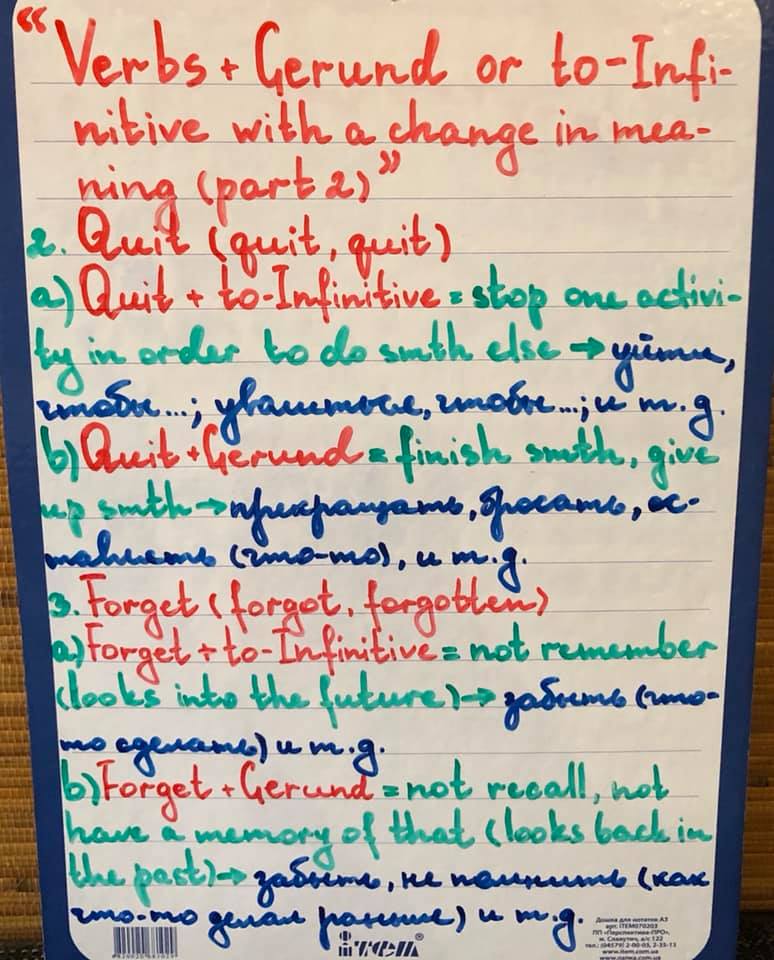 “Verbs + Gerund or to-Infi-
nitive with a change in mea-
ning (part 2)”
2. Quit (quit, quit)
a) Quit + to-Infinitive = stop one activi-
ty in order to do smth else → уйти,
чтобы...; уволиться, чтобы...; и т.д.
b) Quit + Gerund = finish smth, give
up smth → прекращать, бросать, ос-
тавлять (что-то), и т.д.
3. Forget (forgot, forgotten)
a) Forget + to-Infinitive = not remember
(looks into the future) → забыть (что-
то сделать) и т.д.
b) Forget + Gerund = not recall, not
have a memory of that (looks back in
the past) → забыть, не помнить (как
что-то делал раньше) и т.д.
Дошка для нотаток А3
арт. ITEM070203
ПП «Перспектива-ПРО»,
м. Славутич, а/с 122
тел.: (04579) 2-60-05, 2-35-13
www.item.com.ua
ITEM®